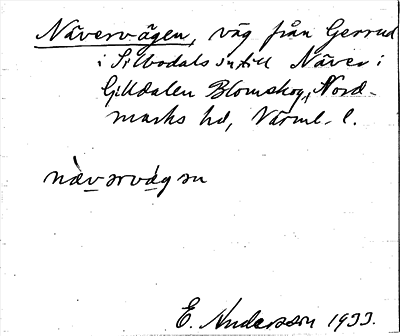 Nävervägen, väg från Gerrud
i Silbodals sn, till Näver i
Gilldalen Blomskog, Nord-
marks hd, Värml. l.
nävərvägən
E. Andersson 1933.